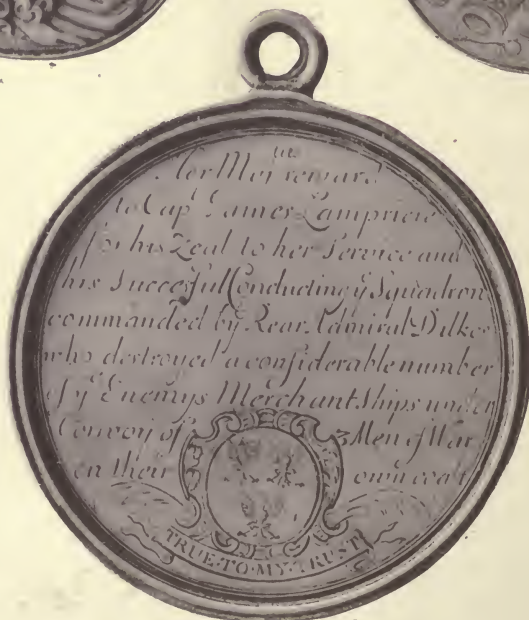 Her Maj<sup>ties</sup> reward
to Cap<sup>t</sup> James Lampriere
for his Zeal to her Service and
his Succesful Conducting y<sup>e</sup> Squadron
commanded by Rear Admiral Dilkes
who destroyed a considerable number
of y<sup>e</sup> Enemys Merchant Ships under
Convoy of 3 Men of War
on their own coast
TRUE·TO·MY·TRUST